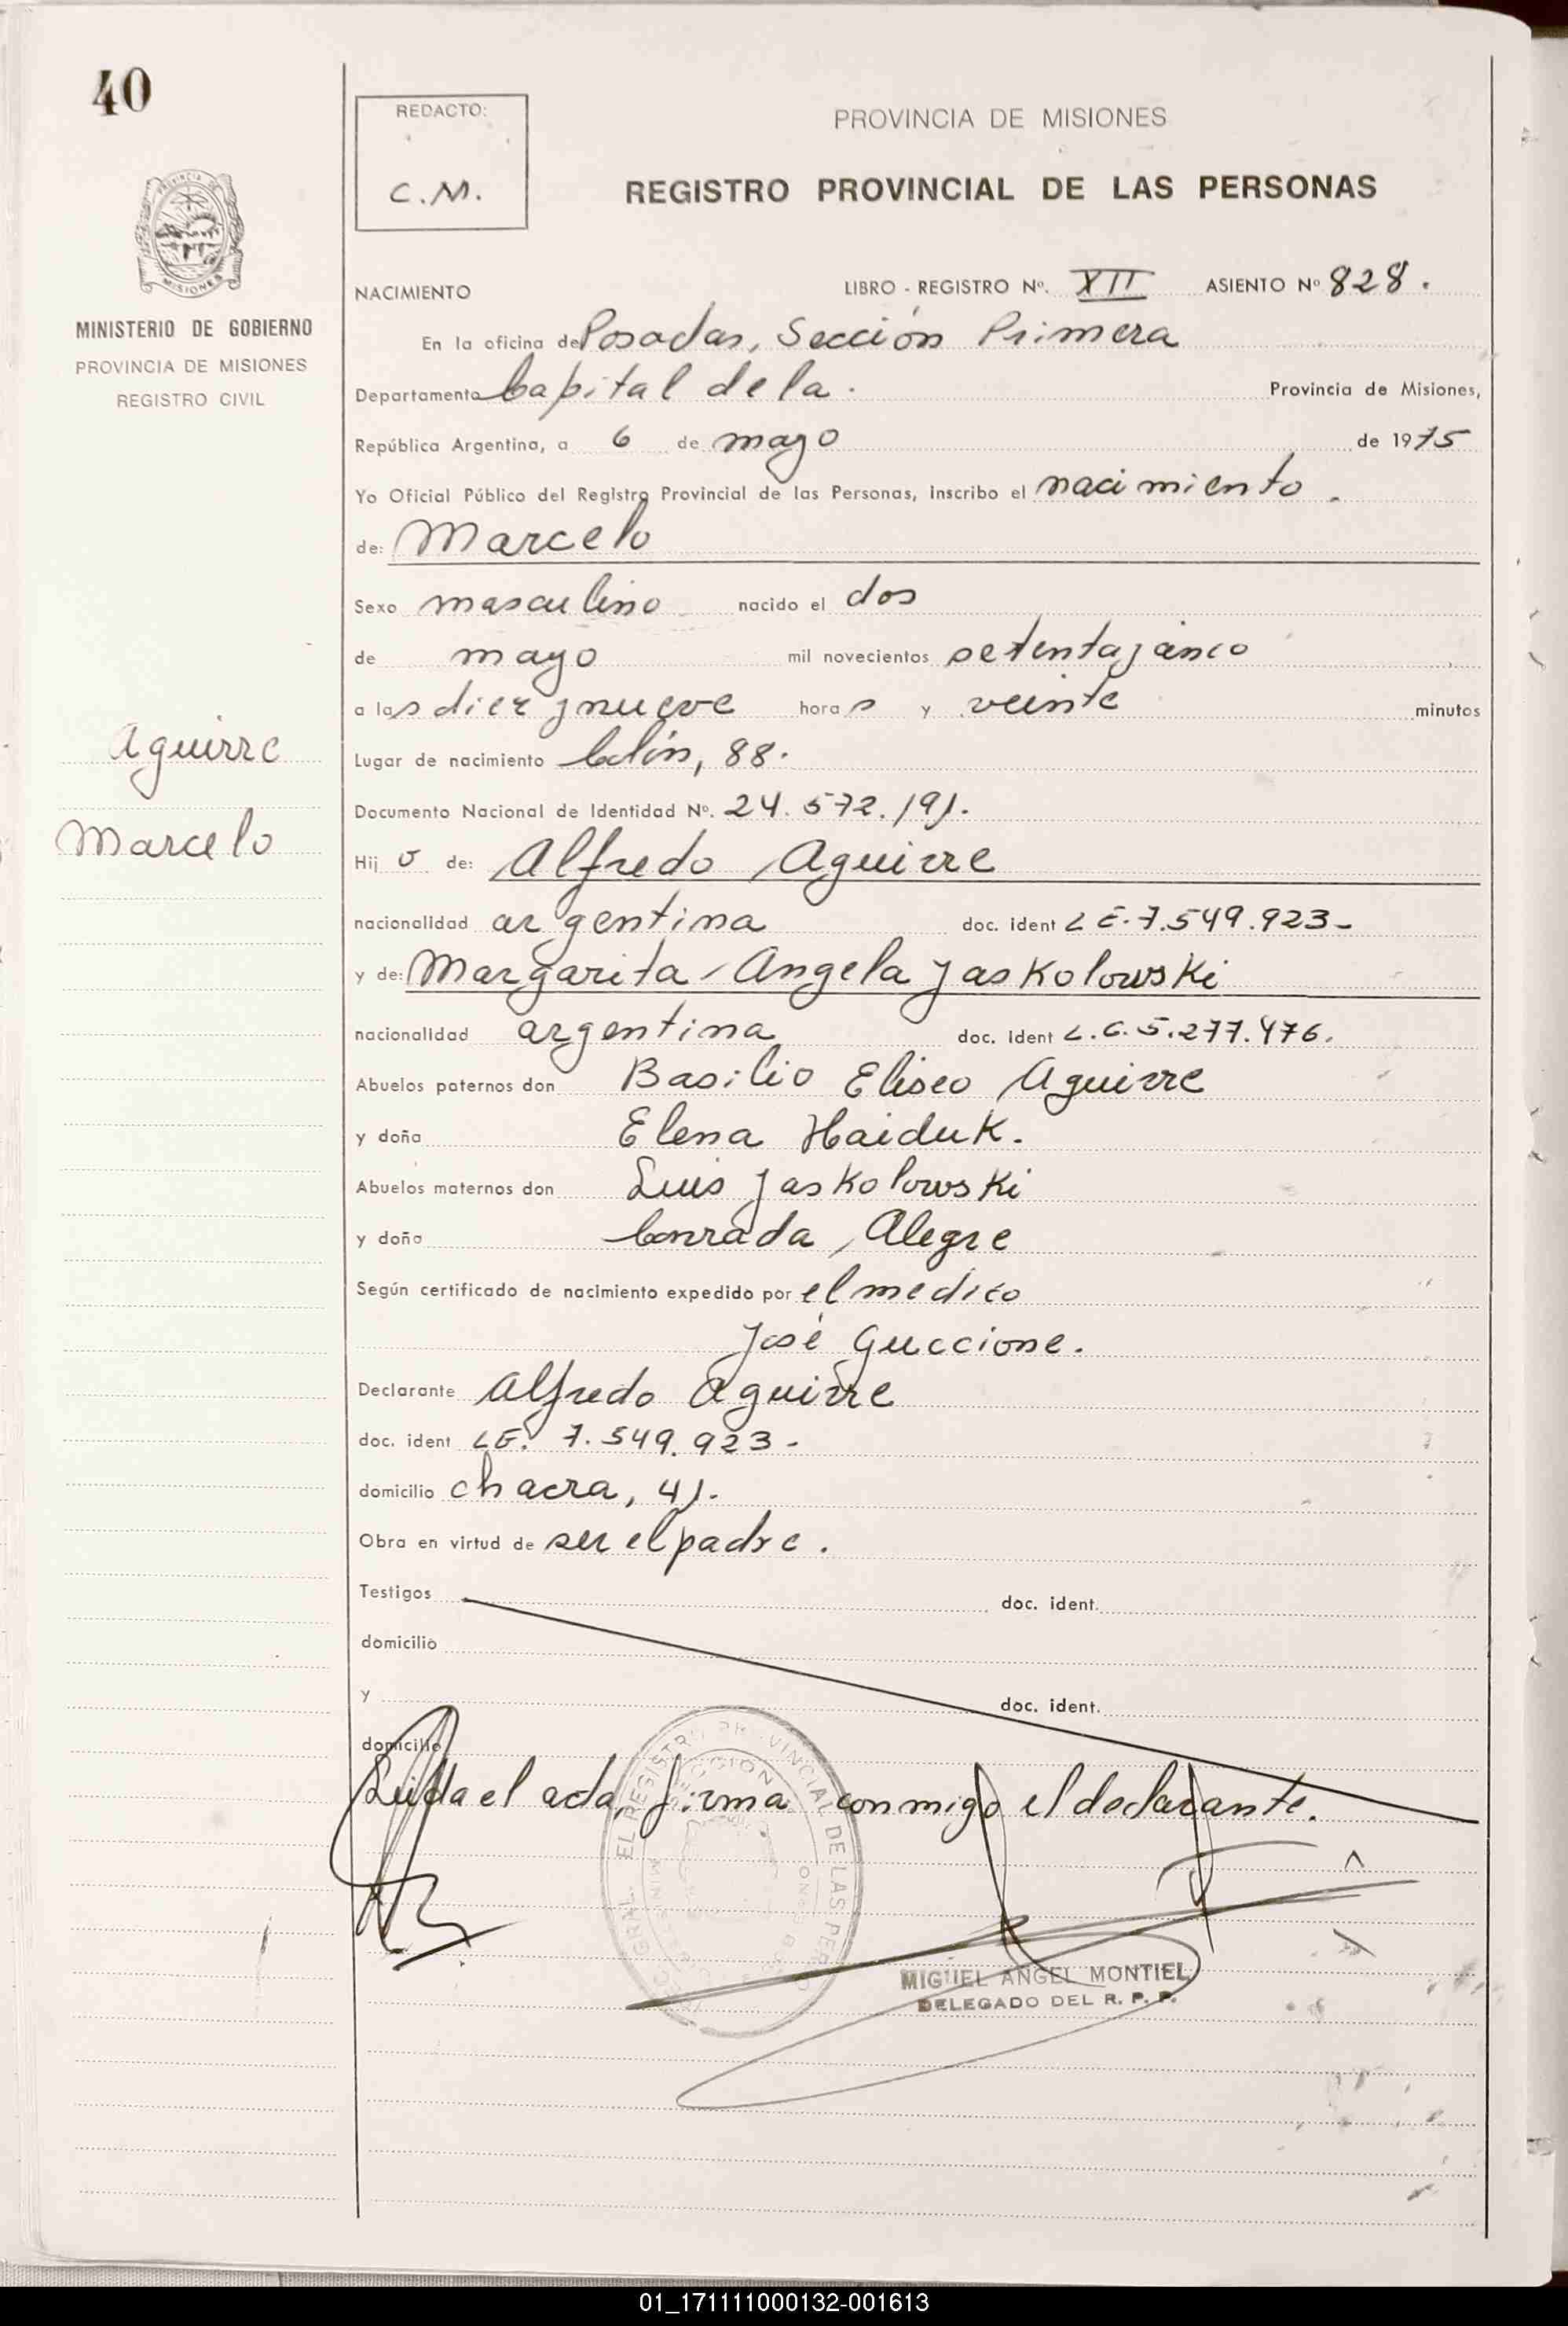 40
REDACTO:
C.M.
PROVINCIA DE MISIONES
REGISTRO PROVINCIAL DE LAS PERSONAS
MISIONES
MINISTERIO DE GOBIERNO
PROVINCIA DE MISIONES
REGISTRO CIVIL
NACIMIENTO LIBRO - REGISTRO Nº. XII ASIENTO Nº 828.
En la oficina de Posadas, Sección Primera
Departamento Capital de la. Provincia de Misiones,
República Argentina, a 6 de mayo de 1975
Yo Oficial Público del Registro Provincial de las Personas, inscribo el nacimiento.
de: Marcelo
Sexo masculino nacido el dos
de mayo mil novecientos setenta y cinco
a las diez y nueve horas y veinte minutos
Aguirre
Lugar de nacimiento Colón, 88.
Documento Nacional de Identidad Nº. 24.572.191.
Marcelo
Hijo de: Alfredo Aguirre
nacionalidad argentina doc. ident L E. 7.549.923-
y de: Margarita Angela Jaskolowski
nacionalidad argentina doc. ident L.C. 5.277.476.
Abuelos paternos don Basilio Eliseo Aguirre
y doña Elena Haiduk.
Abuelos maternos don Luis Jaskolowski
y doña Conrada Alegre
Según certificado de nacimiento expedido por el medico
José Guccione.
Declarante Alfredo Aguirre
doc. ident LE. 7.549.923-
domicilio chacra, 41.
Obra en virtud de ser el padre.
Testigos doc. ident.
domicilio
y doc. ident.
domicilio
Leida el acta, firma conmigo el declarante.
MIGUEL ANGEL MONTIEL
DELEGADO DEL R. P. P.
01_171111000132-001613